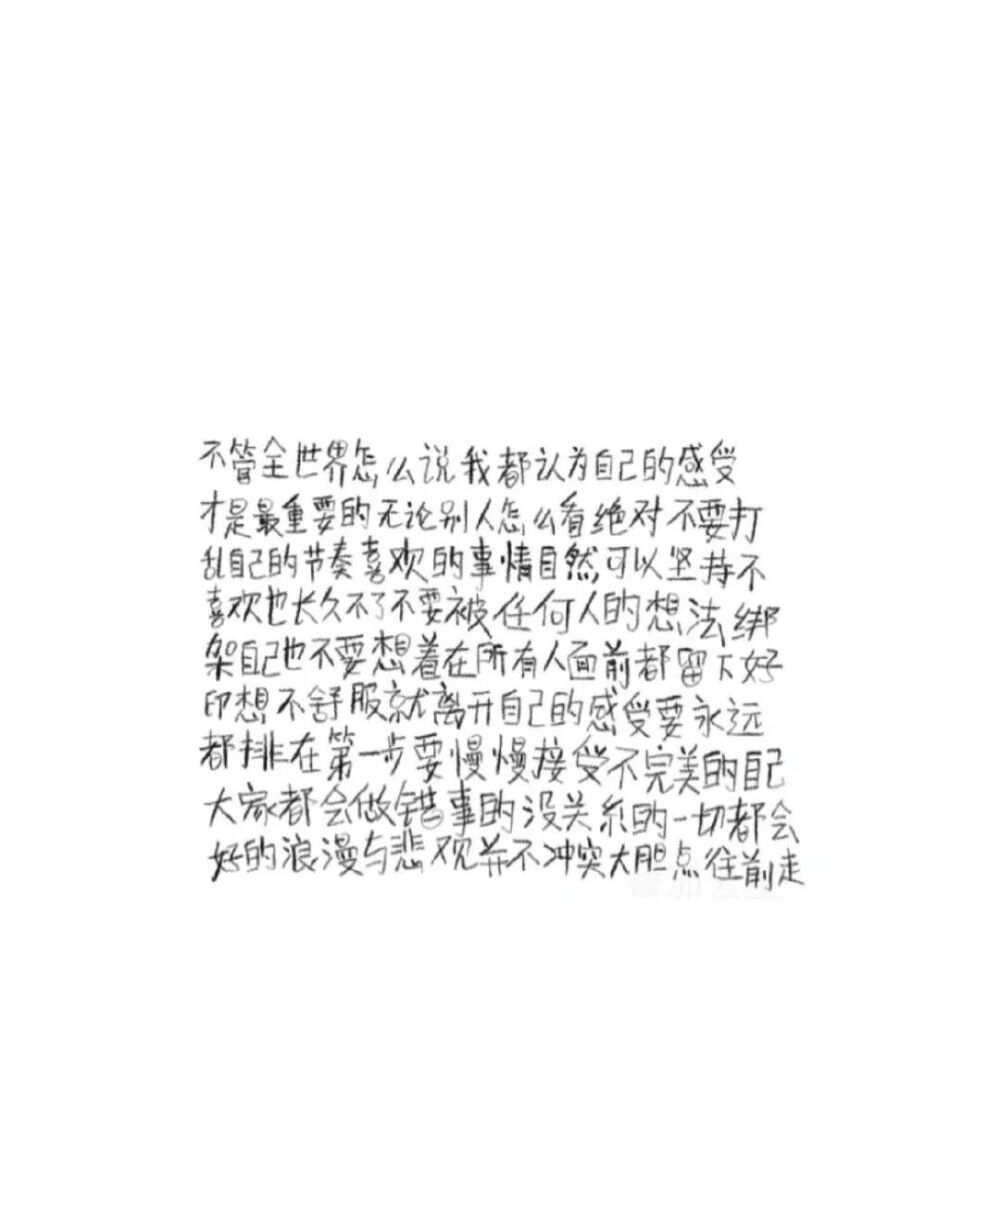 不管全世界怎么说我都认为自己的感受
才是最重要的无论别人怎么看绝对不要打
乱自己的节奏喜欢的事情自然可以坚持不
喜欢也长久不了不要被任何人的想法绑
架自己也不要想着在所有人面前都留下好
印想不舒服就离开自己的感受要永远
都排在第一步要慢慢接受不完美的自己
大家都会做错事的没关系的一切都会
好的浪漫与悲观并不冲突大胆点往前走